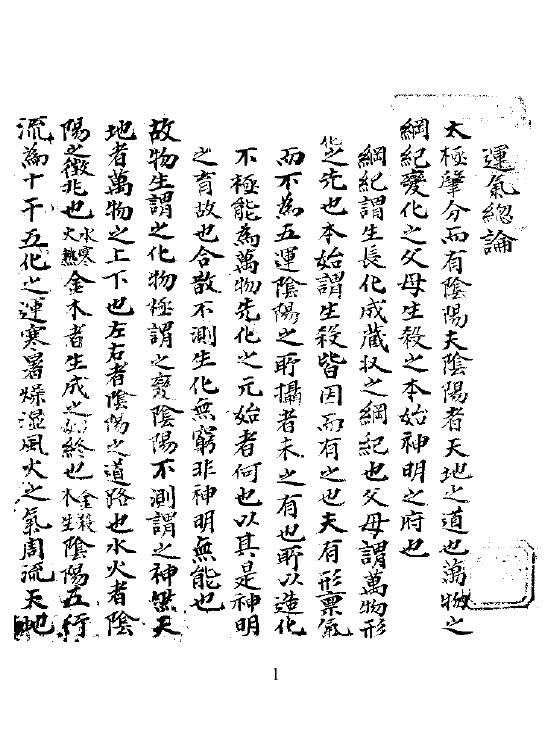 運氣總論
太極肇分而有陰陽夫陰陽者天地之道也萬物之
綱紀變化之父母生殺之本始神明之府也
綱紀謂生長化成蔵収之綱紀也父母謂萬物形
化之先也本始謂生殺皆因而有之也夫有形稟氣
而不為五運陰陽之所攝者未之有也所以造化
不極能為萬物先化之元始者何也以其是神明
之育故也合散不測生化無窮非神明無能也
故物生謂之化物極謂之變陰陽不測謂之神無天
地者萬物之上下也左右者陰陽之道路也水火者陰
陽之徵兆也水寒火熱金木者生成之終也金殺木生陰陽五行
流為十干五化之運寒暑燥湿風火之氣周流天地
1